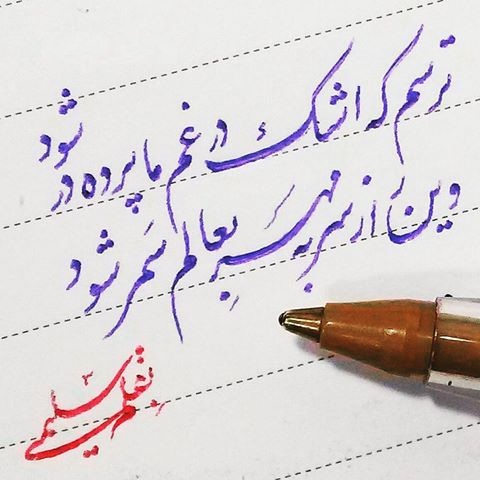 ترسم که اشک در غم ما پرده در شود
وین راز سر به مهر به عالم سمر شود
بقلم سلیمی